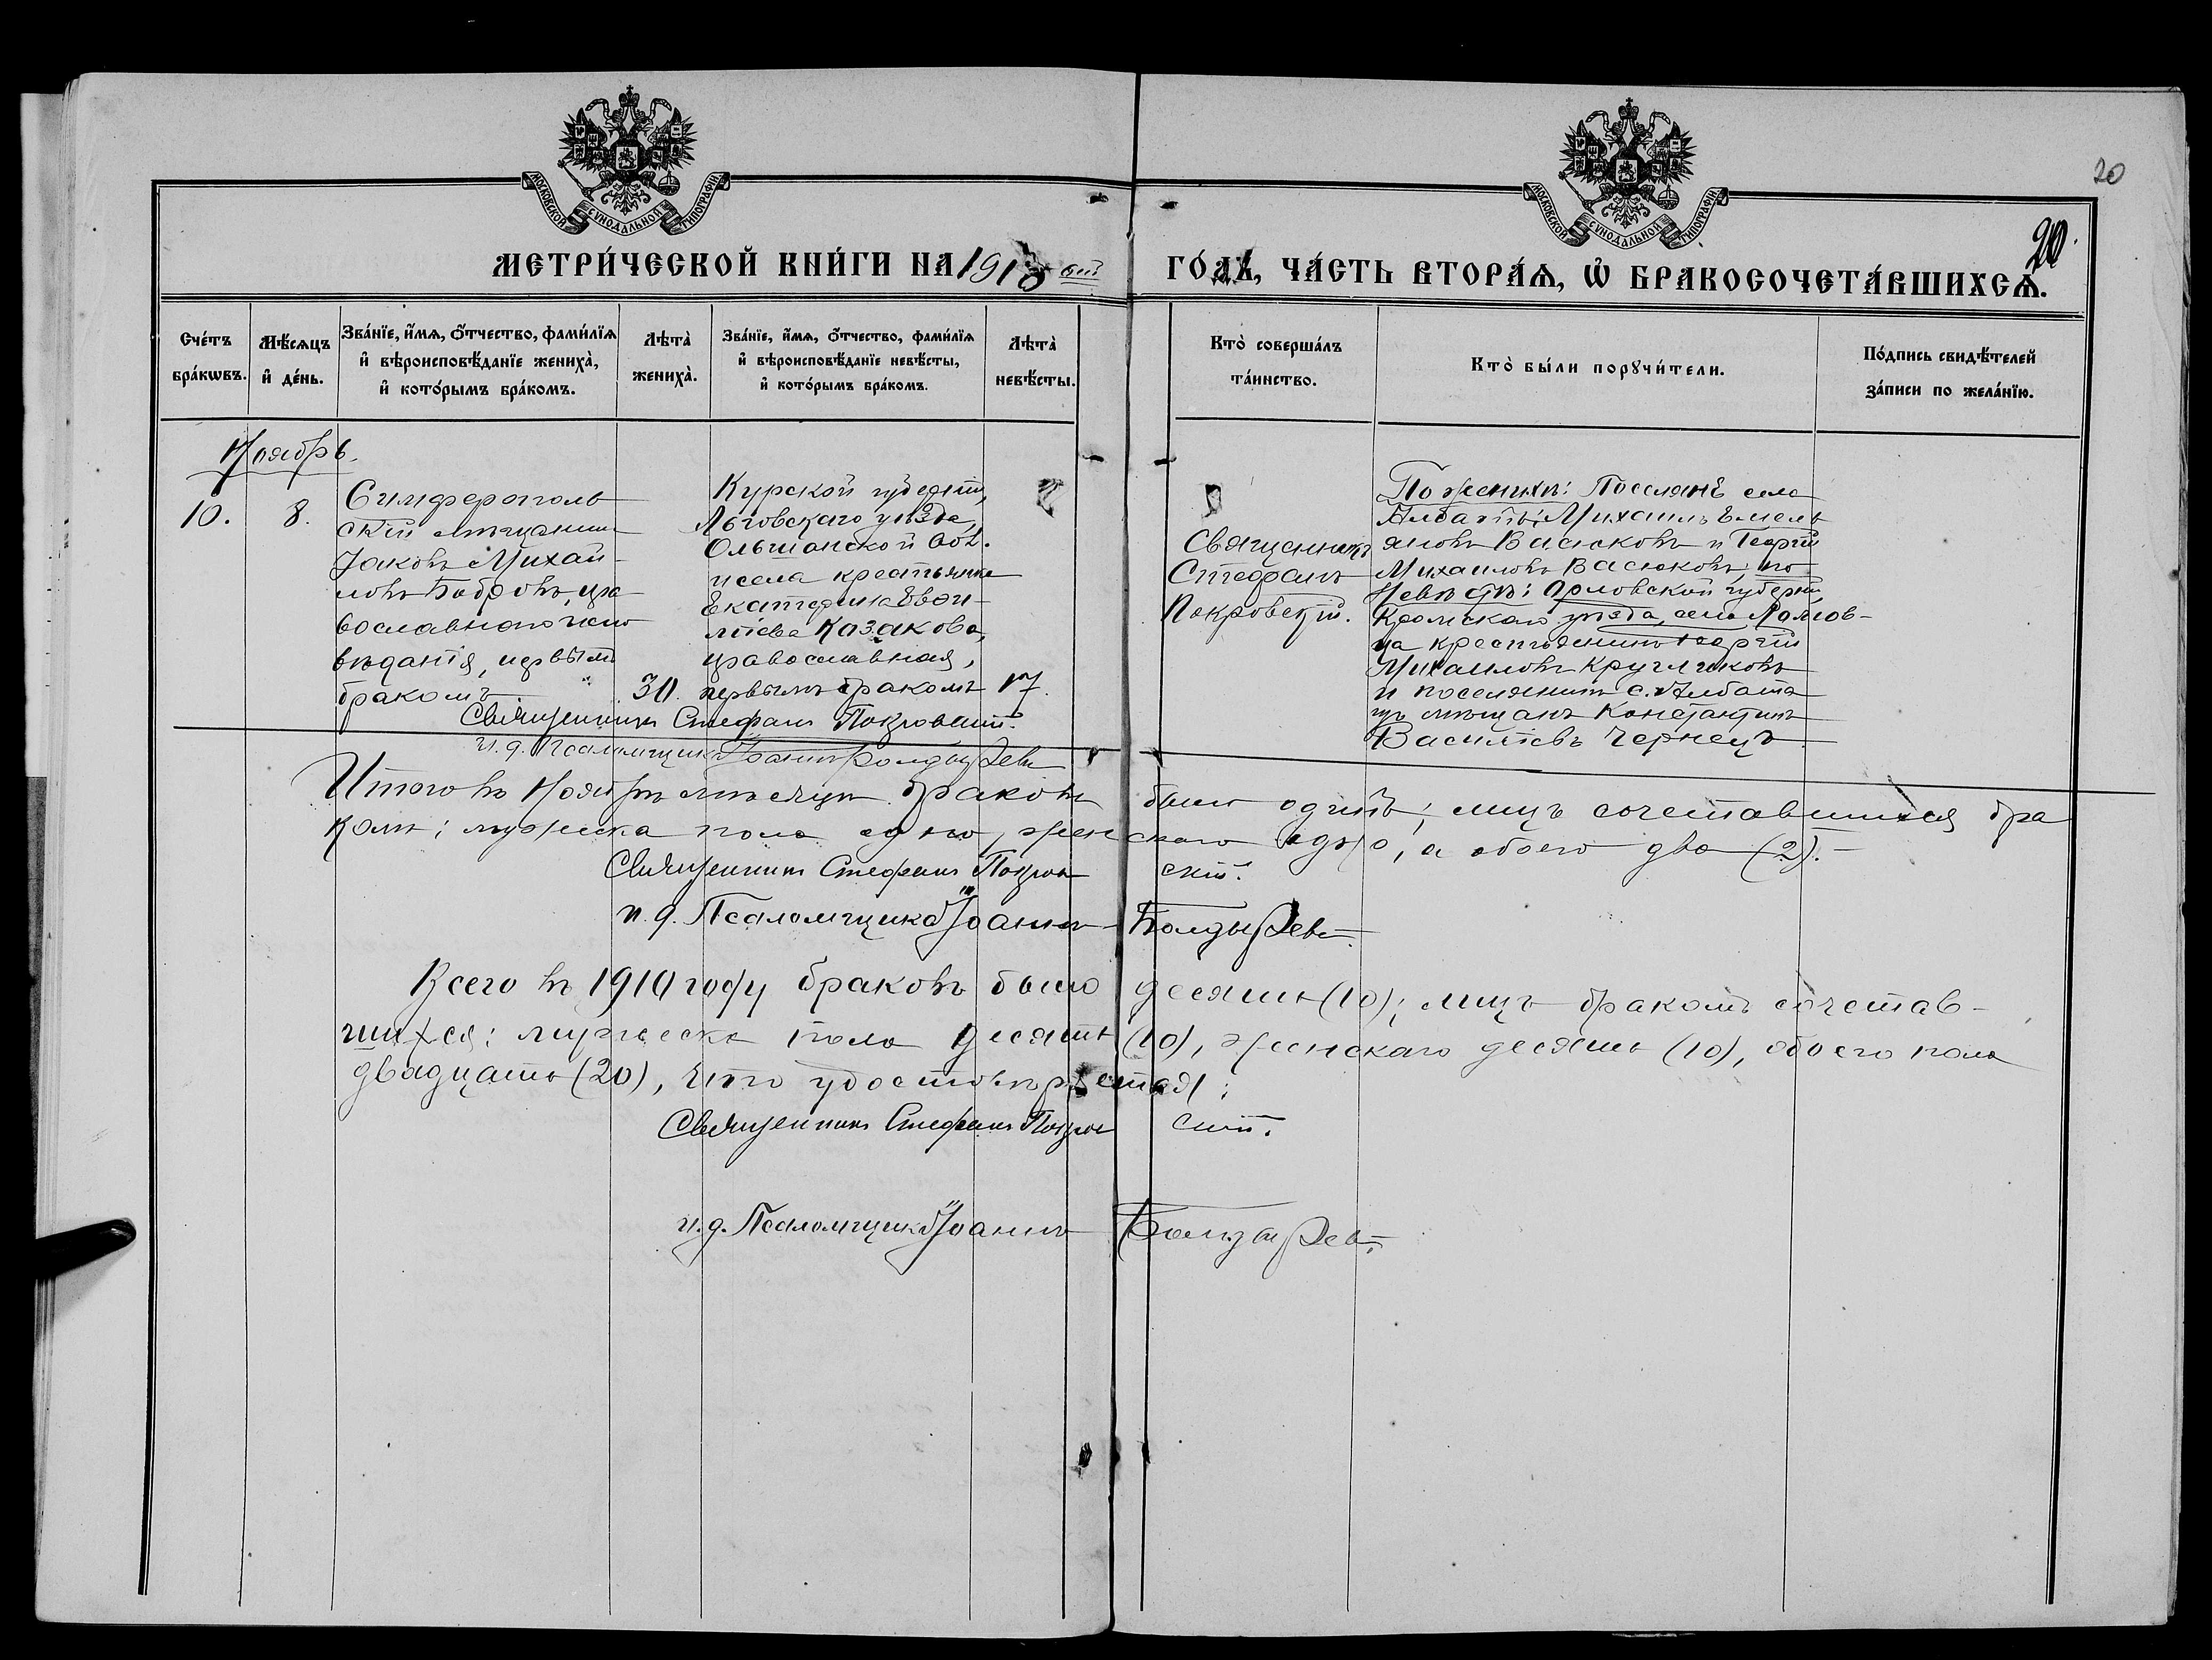 20
МОСКОВСКОЙ СУНОДАЛЬНОЙ ТИПОГРАФІИ
МОСКОВСКОЙ СУНОДАЛЬНОЙ ТИПОГРАФІИ
20.
МЕТРИ́ЧЕСКОЙ КНИ́ГИ НА 1910 ый ГО́ДЪ, ЧА́СТЬ ВТОРА́Ѧ, Ѡ҆ БРАКОСОЧЕТА́ВШИХСѦ.
Сче́тъ бра́кѡвъ.
Мѣ́сѧцъ и҆ де́нь.
Зва́нїе, и҆́мѧ, ѻ҆́тчество, фами́лїѧ и҆ вѣроисповѣ́данїе жениха̀, и҆ кото́рымъ бра́комъ.
Лѣ̀та жениха̀.
Зва́нїе, и҆́мѧ, ѻ҆́тчество, фами́лїѧ и҆ вѣроисповѣ́данїе невѣ́сты, и҆ кото́рымъ бра́комъ.
Лѣ̀та невѣ́сты.
Кто̀ соверша́лъ та́инство.
Кто̀ бы́ли порꙋчи́тели.
По́дпись свидѣ́телей за́писи по жела́нїю.
Ноябрь.
10.
8.
Симферополь
скій мѣщанинъ
Іаковъ Михаи-
ловъ Бобровъ, пра
вославнаго испо
вѣданія, первымъ
бракомъ
30.
Курской губерніи,
Льговскаго уѣзда,
Ольшанской вол.
и села крестьянка
Екатерина
Казакова,
православная,
первымъ бракомъ
17.
Священникъ
Стефанъ
Покровскій.
По женихѣ: Поселяне села
Албатъ: Михаилъ Емель
яновъ Васюковъ и Георгій
Михаиловъ Васюковъ; по
невѣстѣ: Орловской губерніи,
Кромскаго уѣзда, села
крестьянинъ Георгій
Михаиловъ Кругликовъ
и поселянинъ с. Албата
изъ мѣщанъ Константинъ
Василіевъ Чернецъ
Священникъ Стефанъ Покровскій.
и. д. Псаломщика Іоаннъ Болдыревъ
Итого въ Ноябрѣ мѣсяцѣ браковъ было одинъ; лицъ сочетавшихся бра
комъ: мужеска пола одно, женскаго одно, а обоего два (2).
Священникъ Стефанъ Покровскій.
и. д. Псаломщика Іоаннъ Болдыревъ.
Всего въ 1910 году браковъ было десять (10); лицъ бракомъ сочетав-
шихся: мужеска пола десять (10), женскаго десять (10), обоего пола
двадцать (20), что удостовѣряется:
Священникъ Стефанъ Покровскій.
и. д. Псаломщика Іоаннъ Болдыревъ.